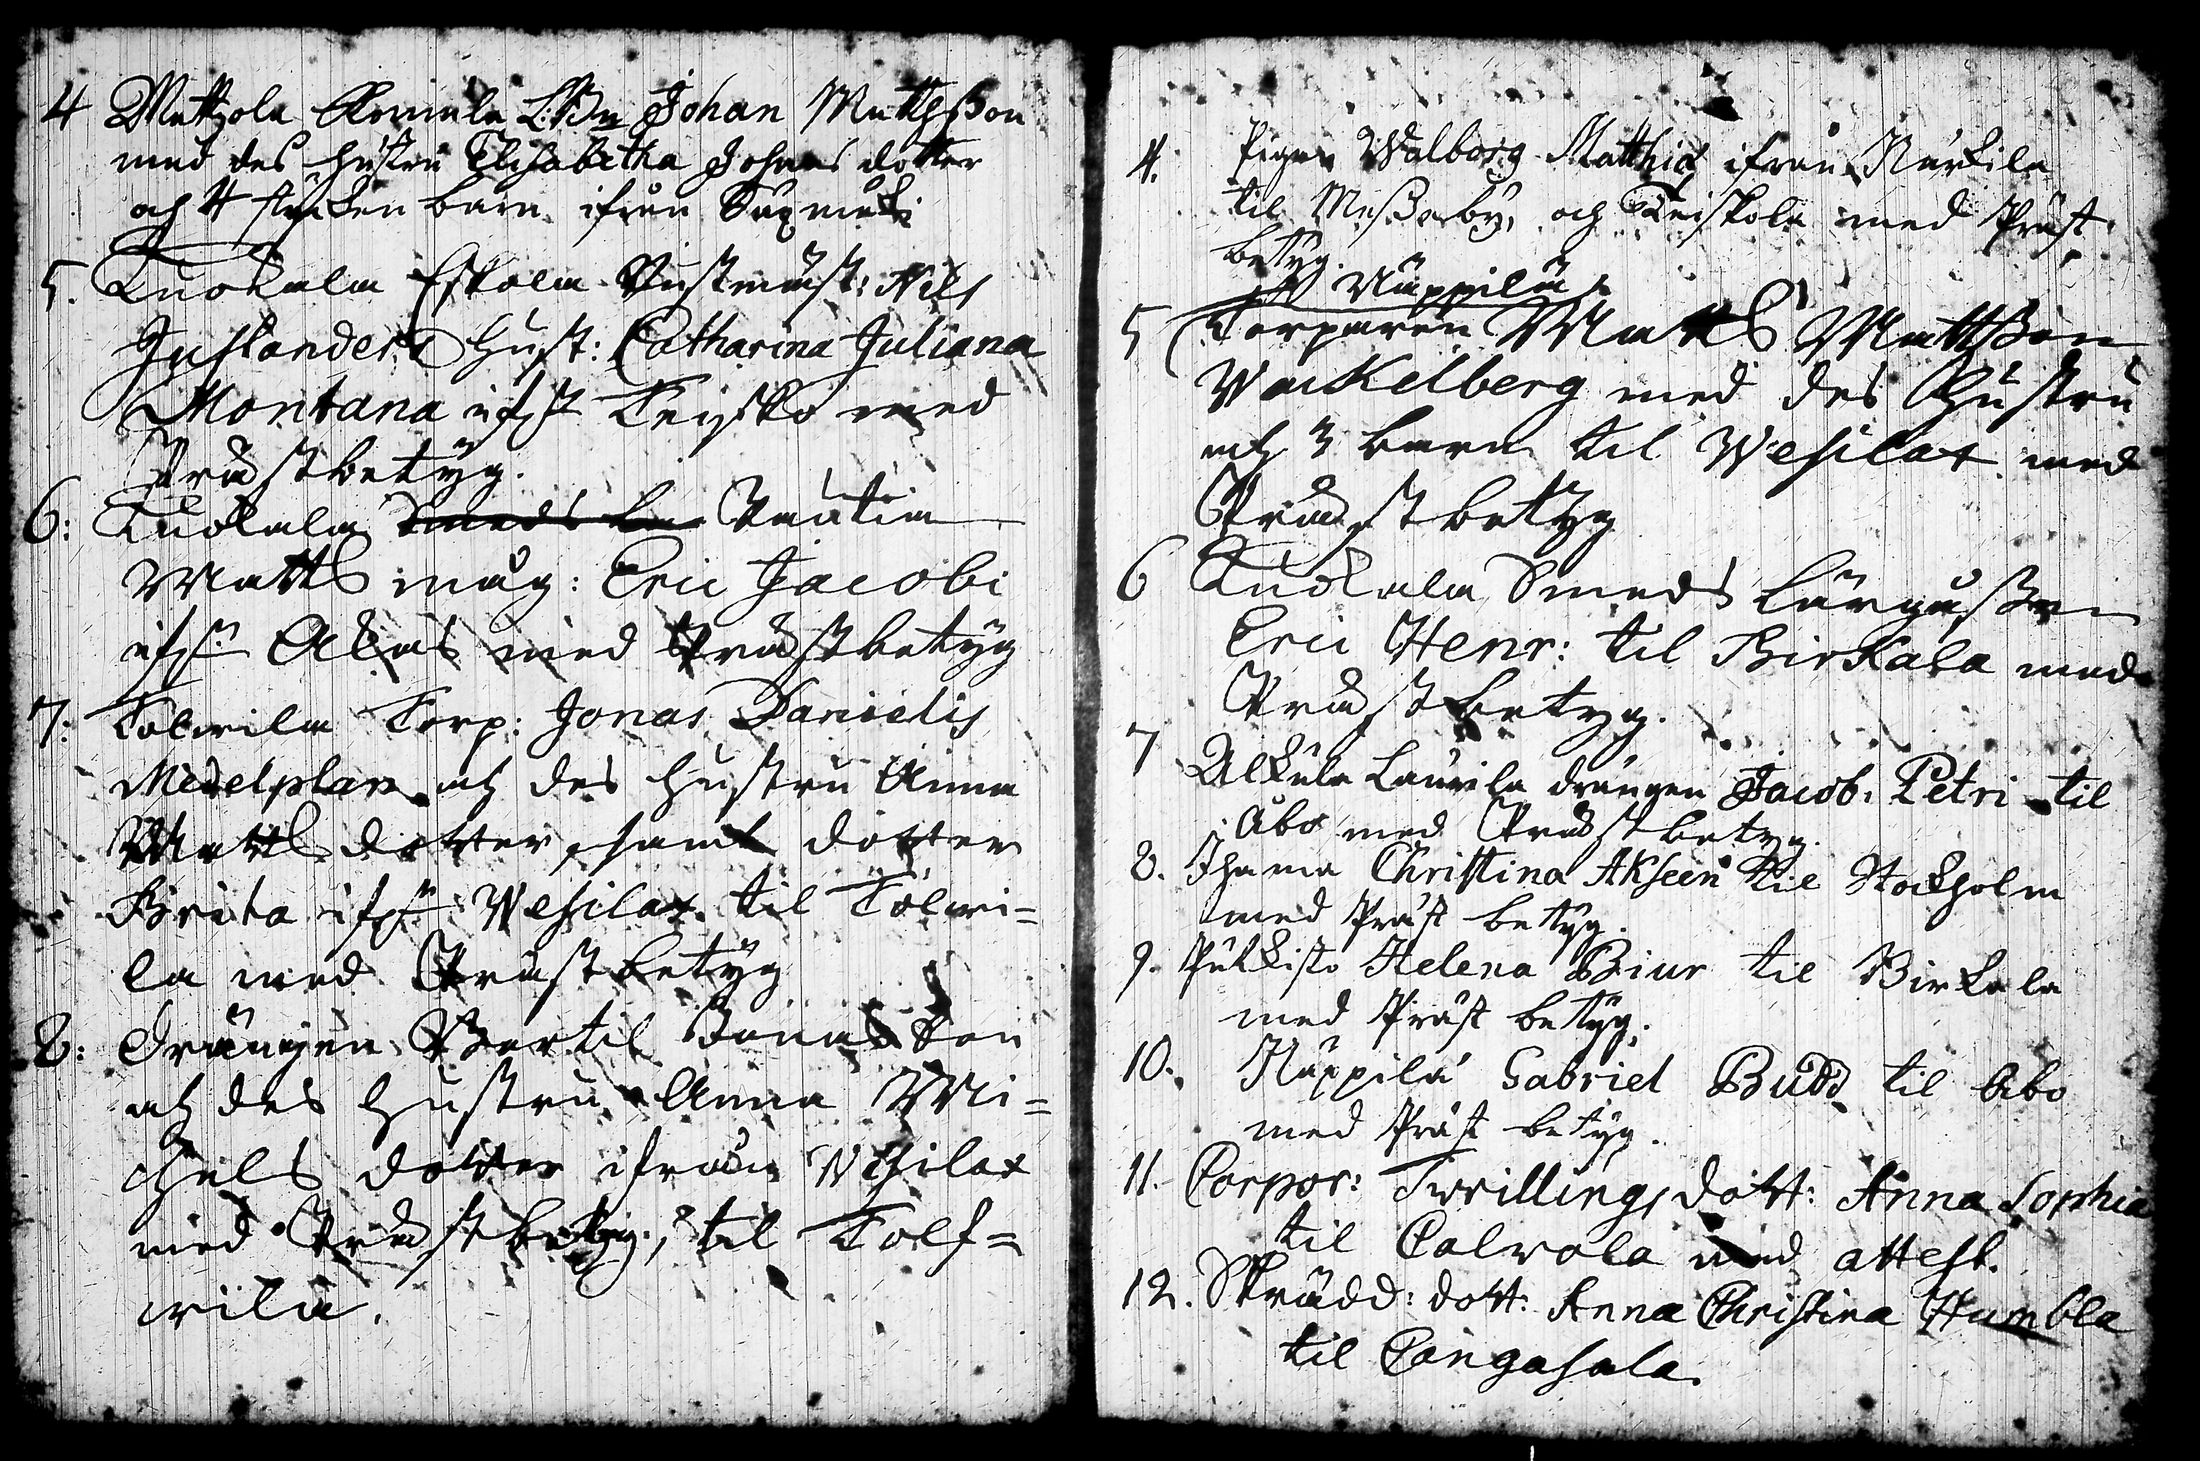 4 Mattzola L:Bn Johan Mattsson
med des hustru Elisabetha Johans dotter
och 4 stycken barn ifrån Suxmäki
5. Kuokala Eskola Rustmäst: Nils
Juslanders Hust: Catharina Juliana
Montana ifrå Teisko med
Prästbetyg.
6: Kuokala Smeds Rautia
Matts måg: Eric Jacobi
ifrå Akas med Prästbetyg
7: Tolvila Torp: Jonas Danielis
Medelplan och des hustru Anna
Matts dotter, samt dotter
Brita ifrå Vesilax til Tolvi=
la med Prästbetyg
8: Drängen Bertil Jonas Son
och des hustru Anna Mi=
chels dotter ifrån Vesilax
med Prästbetyg, til Tolf=
vila.
4. Pigan Walborg Matthiæ ifrån Närkila
til Messuby, och Teiskola med Präst
betyg.
Näppilä
5 Torparen Matts Mattsson
Wackelberg med des Hustru
och 3 barn til Vesilax med
Prästbetyg
6 Kuokala Smeds Lärgåssen
Eric Henr: til Birkala med
Prästbetyg.
7 Alkula Laurila drängen Jacob Petri til
Åbo med Prästbetyg.
8. Christina Akseen til Stockholm
med Präst betyg.
9. Pulkisto Helena Biur til Birkala
med Präst betyg.
10. Näppilä Gabriel Budd til Åbo
med Präst betyg.
11. Corpor: Twilling, dott: Anna Sophia
til Calvola med attest.
12. Skrädd: dott: Anna Christina Humbla
til Cangasala.